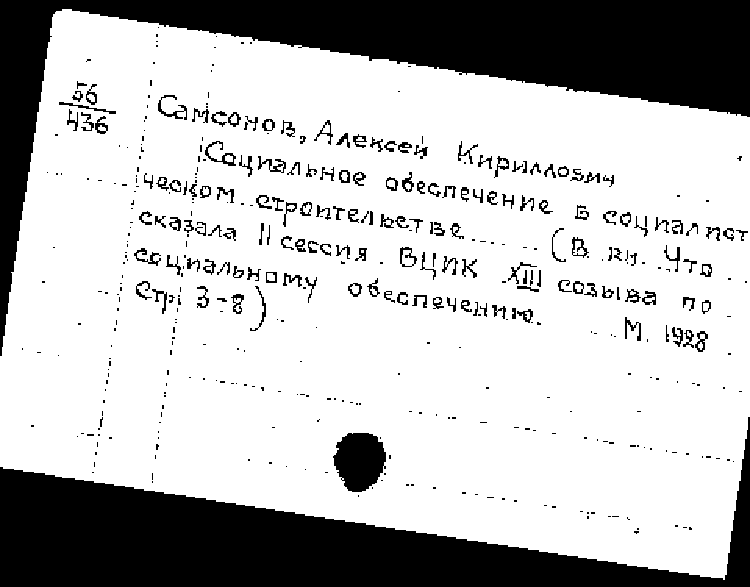 56
436
Самсонов, Алексей Кириллович
Социальное обеспечение в социалист
ческом строительстве...... (В кн. Что
сказала II сессия ВЦИК XIII созыва по
социальному обеспечению. М. 1928
Стр. 3-8)